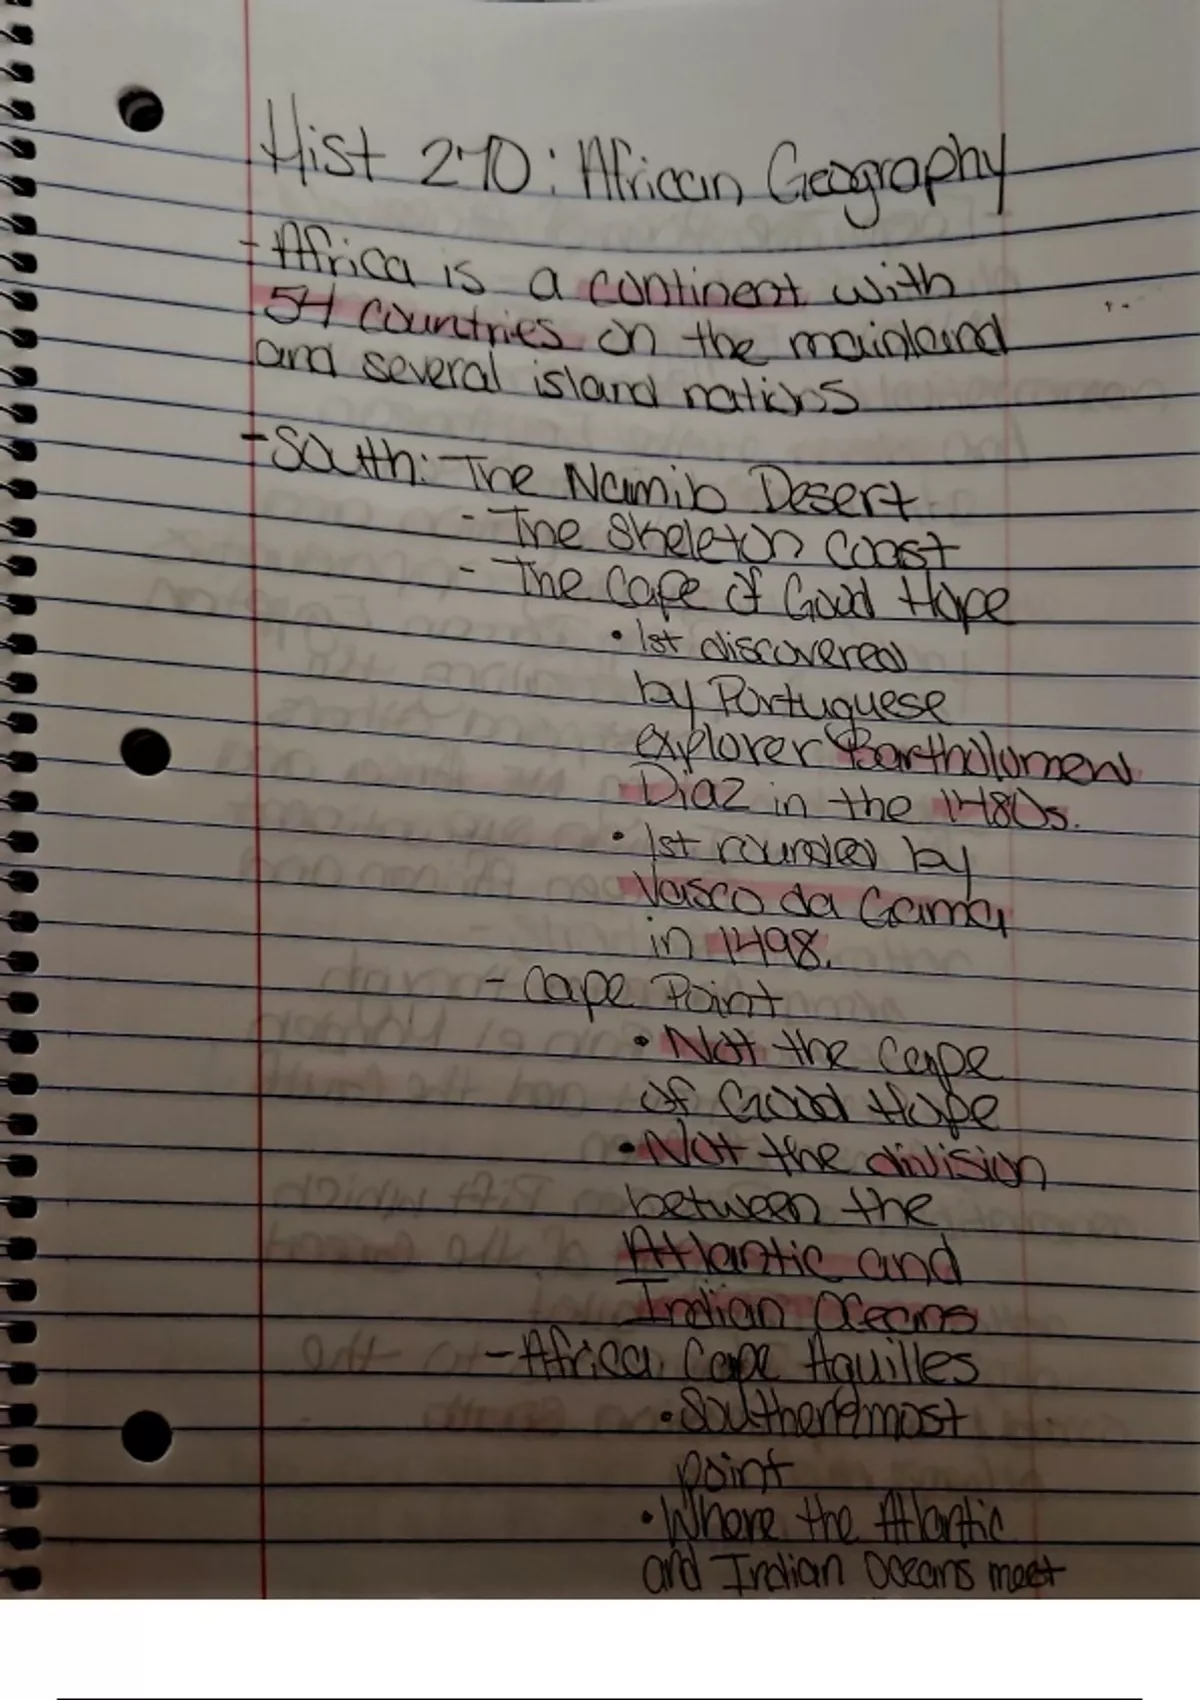 Hist 270: African Geography
- Africa is a continent with
54 countries on the mainland
and several island nations
- South: The Namib Desert
- The Skeleton Coast
- The Cape of Good Hope
• 1st discovered
by Portuguese
explorer Bartholomew
Diaz in the 1480s.
• 1st rounded by
Vasco da Gama
in 1498.
- Cape Point
• Not the Cape
of Good Hope
• Not the division
between the
Atlantic and
Indian Oceans
- Africa Cape Aguilles
• Southernmost
point
• Where the Atlantic
and Indian Oceans meet